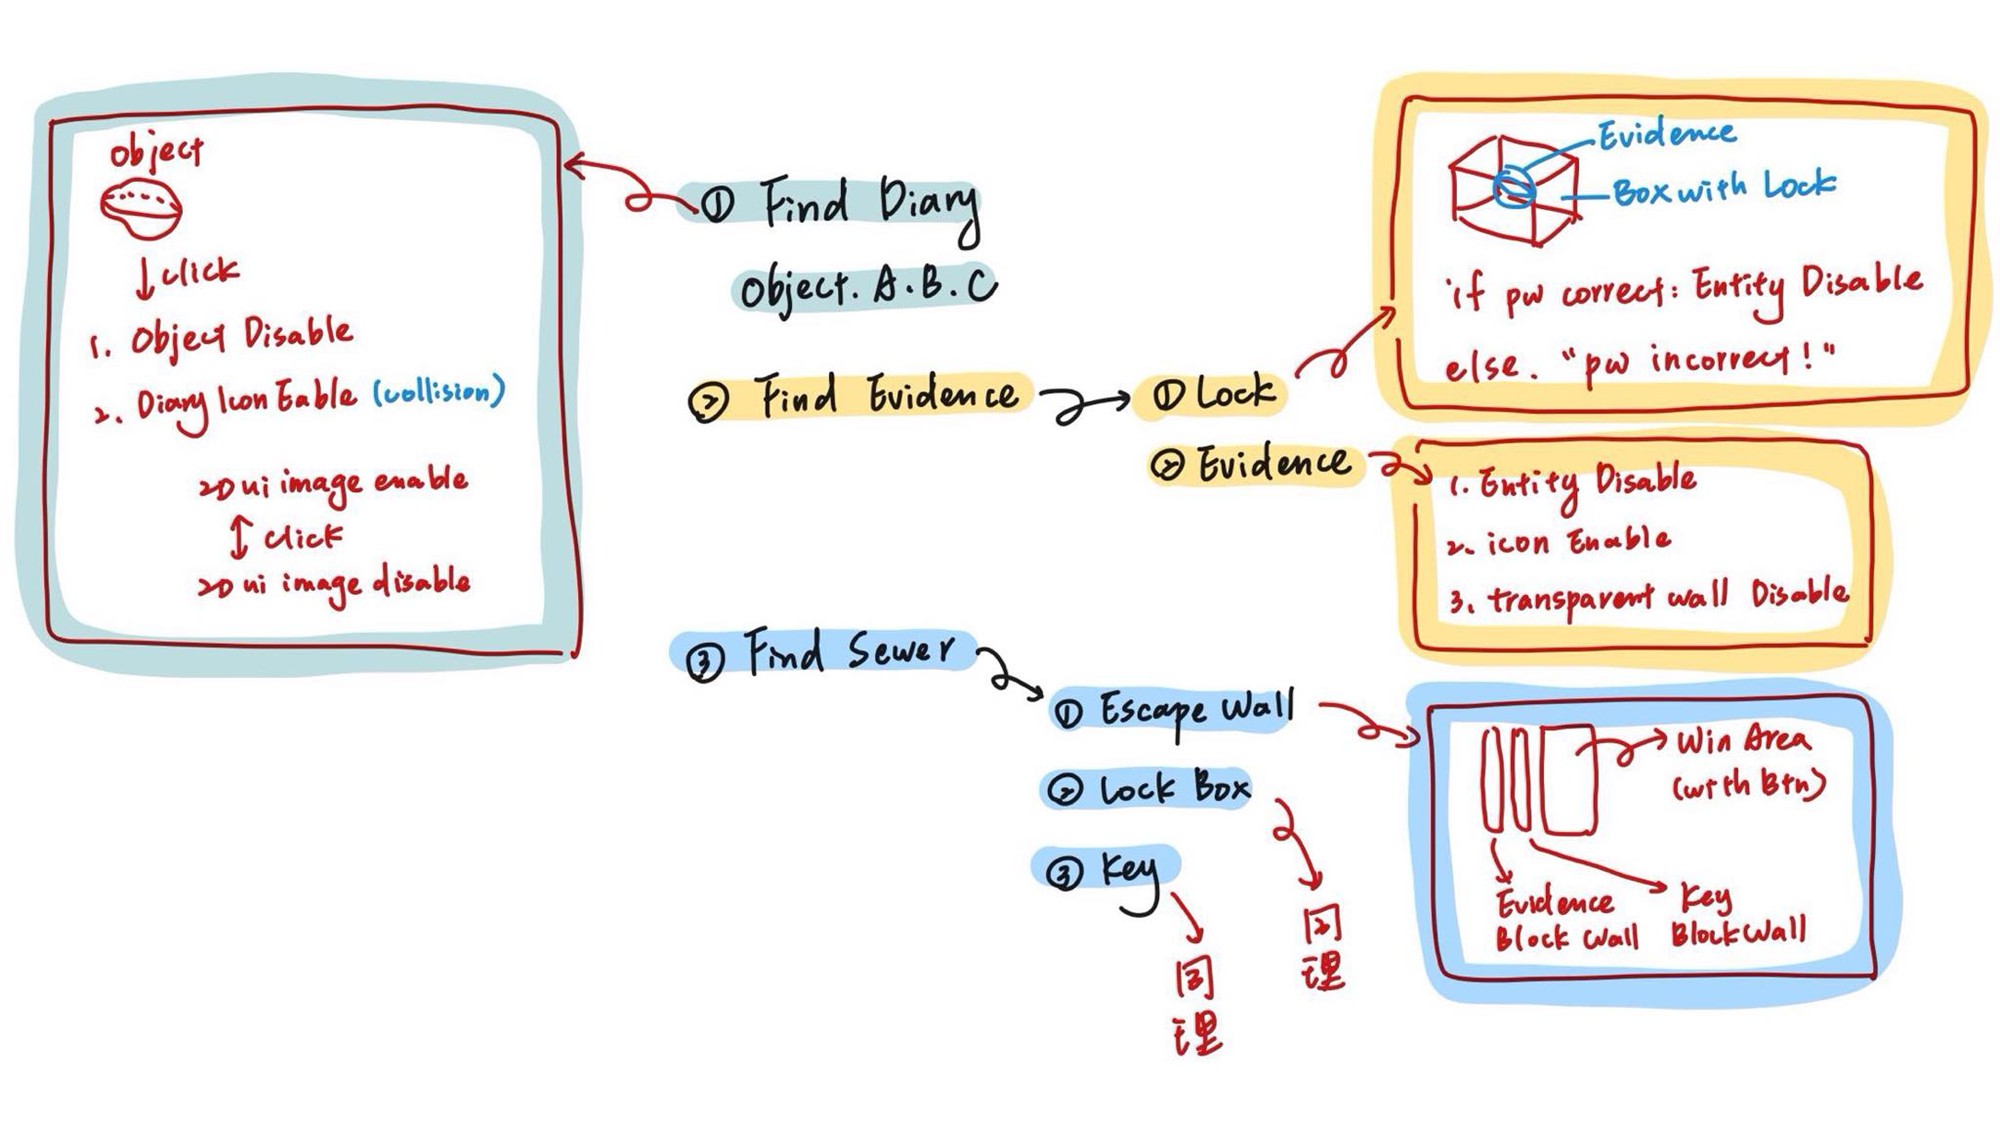 object
click
1. Object Disable
2. Diary Icon Eable (collision)
2D ui image enable
click
2D ui image disable
① Find Diary
object. A. B. C
② Find Evidence
① Lock
② Evidence
Evidence
Box with Lock
if pw correct: Entity Disable
else. "pw incorrect!"
1. Entity Disable
2. icon Enable
3. transparent wall Disable
③ Find Sewer
① Escape Wall
② Lock Box
同
理
③ Key
同
理
Win Area
(with Btn)
Evidence
Block Wall
Key
Block Wall